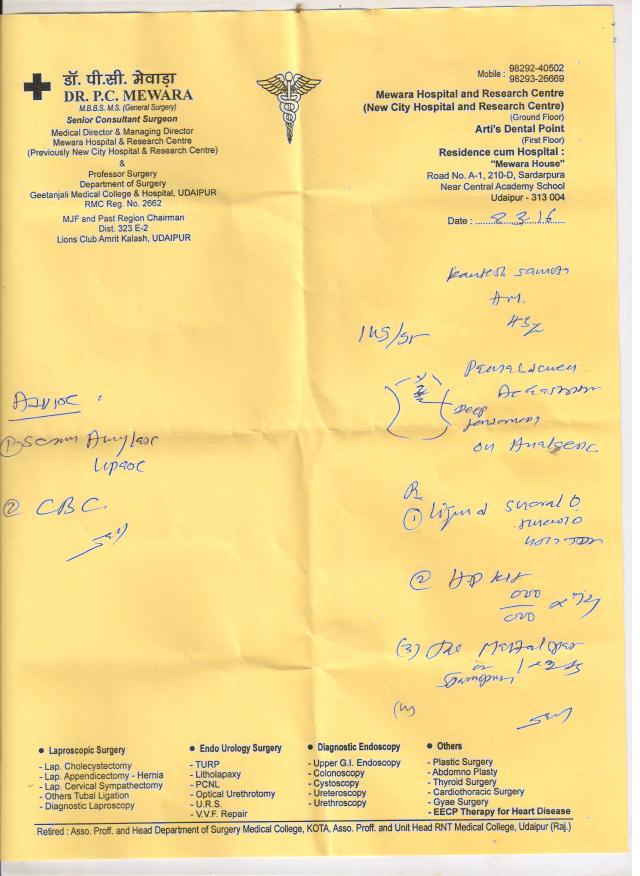 डॉ. पी.सी. मेवाड़ा
DR. P.C. MEWARA
M.B.B.S. M.S. (General Surgery)
Senior Consultant Surgeon
Medical Director & Managing Director
Mewara Hospital & Research Centre
(Previously New City Hospital & Research Centre)
&
Professor Surgery
Department of Surgery
Geetanjali Medical College & Hospital, UDAIPUR
RMC Reg. No. 2662
MJF and Past Region Chairman
Dist. 323 E-2
Lions Club Amrit Kalash, UDAIPUR
Mobile : 98292-40502
98293-26669
Mewara Hospital and Research Centre
(New City Hospital and Research Centre)
(Ground Floor)
Arti's Dental Point
(First Floor)
Residence cum Hospital :
"Mewara House"
Road No. A-1, 210-D, Sardarpura
Near Central Academy School
Udaipur - 313 004
Date : 8.3.16
Deep
on Analgesic
Advice
① Serum Amylase
Lipase
② CBC.
Rx
① Liquid
② HP Kit
(3)
(4)
Laproscopic Surgery
- Lap. Cholecystectomy
- Lap. Appendicectomy - Hernia
- Lap. Cervical Sympathectomy
- Others Tubal Ligation
- Diagnostic Laproscopy
Endo Urology Surgery
- TURP
- Litholapaxy
- PCNL
- Optical Urethrotomy
- U.R.S.
- V.V.F. Repair
Diagnostic Endoscopy
- Upper G.I. Endoscopy
- Colonoscopy
- Cystoscopy
- Ureteroscopy
- Urethroscopy
Others
- Plastic Surgery
- Abdomno Plasty
- Thyroid Surgery
- Cardiothoracic Surgery
- Gyae Surgery
- EECP Therapy for Heart Disease
Retired : Asso. Proff. and Head Department of Surgery Medical College, KOTA, Asso. Proff. and Unit Head RNT Medical College, Udaipur (Raj.)